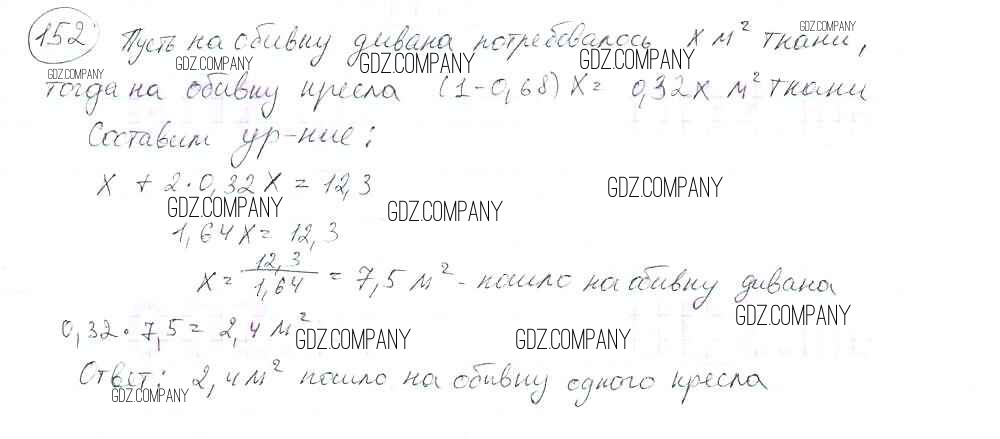 152 Пусть на обивку дивана потребовалось x м² ткани,
тогда на обивку кресла (1-0,68)x = 0,32x м² ткани
Составим ур-ние:
x + 2·0,32x = 12,3
1,64x = 12,3
x = 12,3/1,64 = 7,5 м² - пошло на обивку дивана
0,32·7,5 = 2,4 м²
Ответ: 2,4 м² пошло на обивку одного кресла
GDZ.COMPANY
GDZ.COMPANY
GDZ.COMPANY
GDZ.COMPANY
GDZ.COMPANY
GDZ.COMPANY
GDZ.COMPANY
GDZ.COMPANY
GDZ.COMPANY
GDZ.COMPANY
GDZ.COMPANY
GDZ.COMPANY
GDZ.COMPANY